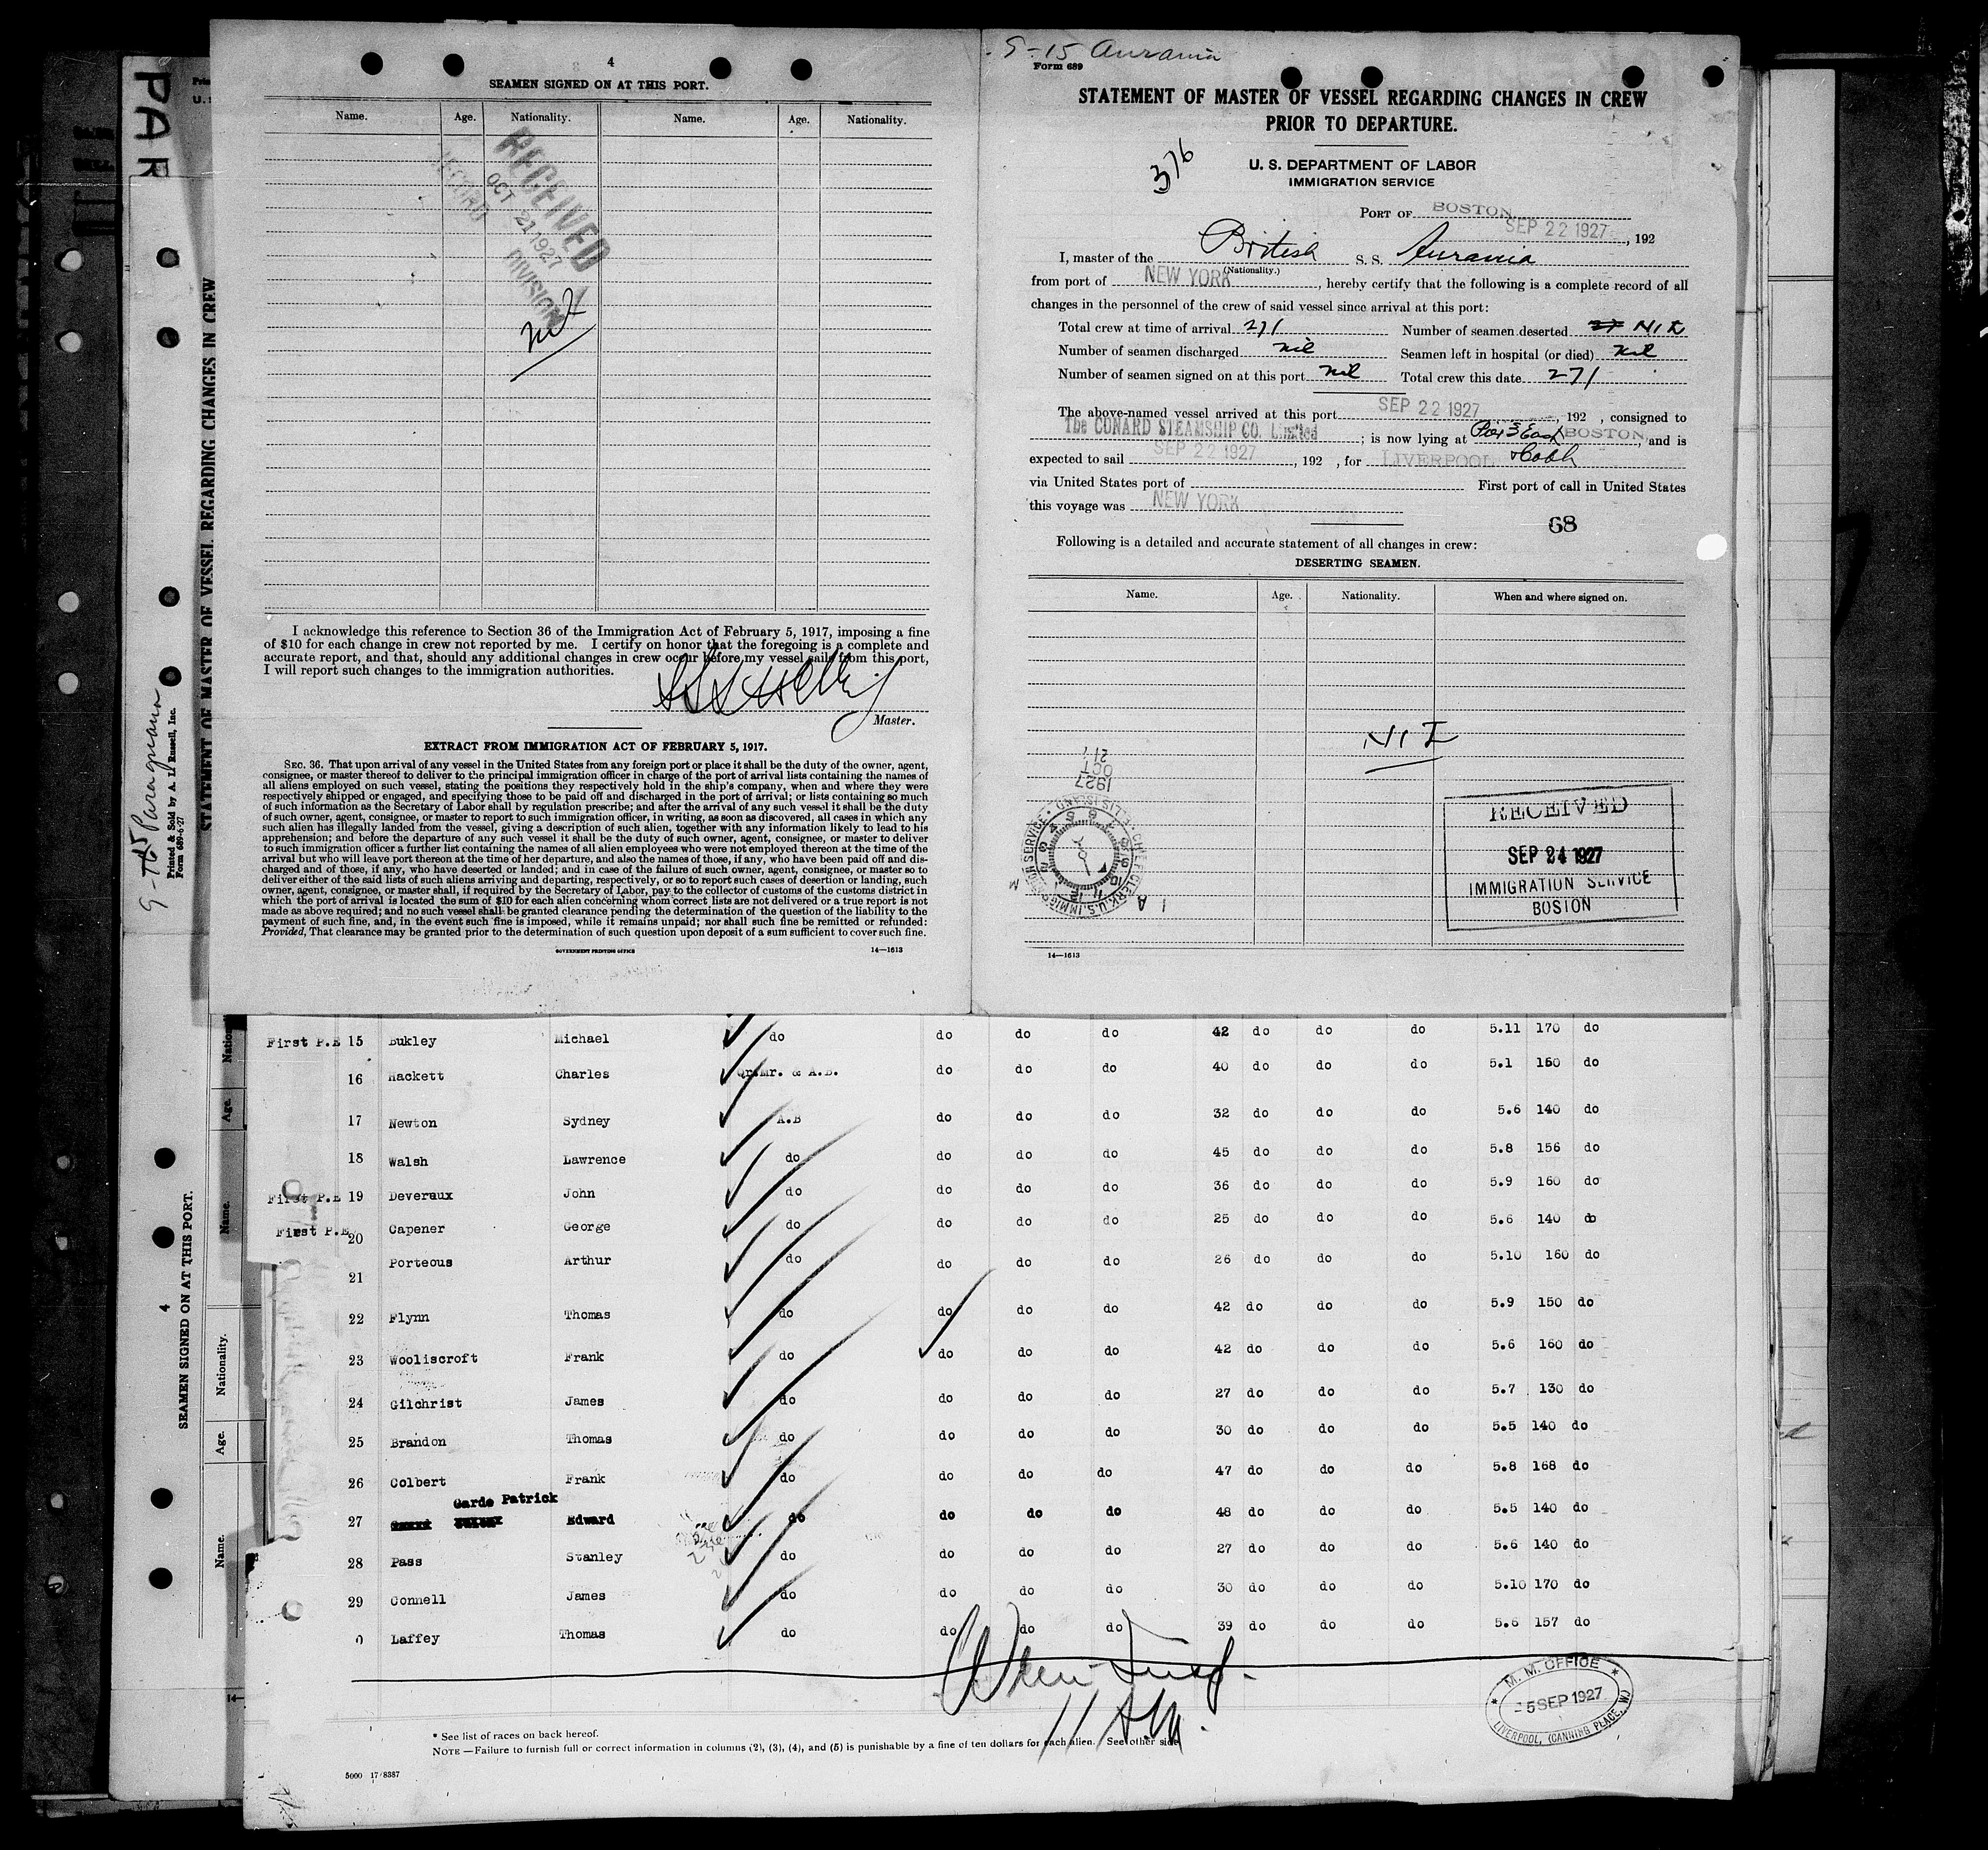 4
SEAMEN SIGNED ON AT THIS PORT.
Name. Age. Nationality. Name. Age. Nationality.
RECEIVED
OCT 21 1927
RECORD DIVISION
nil
I acknowledge this reference to Section 36 of the Immigration Act of February 5, 1917, imposing a fine
of $10 for each change in crew not reported by me. I certify on honor that the foregoing is a complete and
accurate report, and that, should any additional changes in crew occur before my vessel sails from this port,
I will report such changes to the immigration authorities.
Master.
EXTRACT FROM IMMIGRATION ACT OF FEBRUARY 5, 1917.
SEC. 36. That upon arrival of any vessel in the United States from any foreign port or place it shall be the duty of the owner, agent,
consignee, or master thereof to deliver to the principal immigration officer in charge of the port of arrival lists containing the names of
all aliens employed on such vessel, stating the positions they respectively hold in the ship's company, when and where they were
respectively shipped or engaged, and specifying those to be paid off and discharged in the port of arrival; or lists containing so much
of such information as the Secretary of Labor shall by regulation prescribe; and after the arrival of any such vessel it shall be the duty
of such owner, agent, consignee, or master to report to such immigration officer, in writing, as soon as discovered, all cases in which any
such alien has illegally landed from the vessel, giving a description of such alien, together with any information likely to lead to his
apprehension; and before the departure of any such vessel it shall be the duty of such owner, agent, consignee, or master to deliver
to such immigration officer a further list containing the names of all alien employees who were not employed thereon at the time of the
arrival but who will leave port thereon at the time of her departure, and also the names of those, if any, who have been paid off and dis-
charged and of those, if any, who have deserted or landed; and in case of the failure of such owner, agent, consignee, or master so to
deliver either of the said lists of such aliens arriving and departing, respectively, or so to report such cases of desertion or landing, such
owner, agent, consignee, or master shall, if required by the Secretary of Labor, pay to the collector of customs of the customs district in
which the port of arrival is located the sum of $10 for each alien concerning whom correct lists are not delivered or a true report is not
made as above required; and no such vessel shall be granted clearance pending the determination of the question of the liability to the
payment of such fine, and, in the event such fine is imposed, while it remains unpaid; nor shall such fine be remitted or refunded:
Provided, That clearance may be granted prior to the determination of such question upon deposit of a sum sufficient to cover such fine.
GOVERNMENT PRINTING OFFICE 14—1613
S-15 Aurania
Form 689
STATEMENT OF MASTER OF VESSEL REGARDING CHANGES IN CREW
PRIOR TO DEPARTURE.
376
U. S. DEPARTMENT OF LABOR
IMMIGRATION SERVICE
PORT OF BOSTON
SEP 22 1927, 192
I, master of the British S. S. Aurania
(Nationality.)
from port of NEW YORK, hereby certify that the following is a complete record of all
changes in the personnel of the crew of said vessel since arrival at this port:
Total crew at time of arrival 271 Number of seamen deserted NIL
Number of seamen discharged nil Seamen left in hospital (or died) nil
Number of seamen signed on at this port nil Total crew this date 271
The above-named vessel arrived at this port SEP 22 1927, 192 , consigned to
The CUNARD STEAMSHIP CO. Limited; is now lying at Pier 3 East BOSTON, and is
expected to sail SEP 22 1927, 192 , for LIVERPOOL & Cobh
via United States port of First port of call in United States
this voyage was NEW YORK
68
Following is a detailed and accurate statement of all changes in crew:
DESERTING SEAMEN.
Name. Age. Nationality. When and where signed on.
NIL
1927 OCT 21
CHIEF CLERK U.S. IMMIGRATION SERVICE ELLIS ISLAND
RECEIVED
SEP 24 1927
IMMIGRATION SERVICE
BOSTON
14—1613
PAR
S-15 Paraguana
Printed & Sold by A. L. Russell, Inc.
Form 689-6-27
STATEMENT OF MASTER OF VESSEL REGARDING CHANGES IN CREW
4
SEAMEN SIGNED ON AT THIS PORT.
Name. Age. Nationality. Name. Age.
First P.E 15 Bukley Michael do do do do 42 do do do 5.11 170 do
16 Hackett Charles Qr.Mr. & A.B. do do do 40 do do do 5.1 150 do
17 Newton Sydney A.B do do do 32 do do do 5.6 140 do
18 Walsh Lawrence do do do do 45 do do do 5.8 156 do
First P.E 19 Deveraux John do do do do 36 do do do 5.9 160 do
First P.E 20 Capener George do do do do 25 do do do 5.6 140 do
21 Porteous Arthur do do do do 26 do do do 5.10 160 do
22 Flynn Thomas do do do do 42 do do do 5.9 150 do
23 Wooliscroft Frank do do do do 42 do do do 5.6 160 do
24 Gilchrist James do do do do 27 do do do 5.7 130 do
25 Brandon Thomas do do do do 30 do do do 5.5 140 do
26 Colbert Frank do do do do 47 do do do 5.8 168 do
Garde Patrick
27 Edward do do do do 48 do do do 5.5 140 do
28 Pass Stanley do do do do 27 do do do 5.6 140 do
29 Connell James do do do do 30 do do do 5.10 170 do
0 Laffey Thomas do do do do 39 do do do 5.6 157 do
M. M. OFFICE
-5 SEP 1927
LIVERPOOL, (CANNING PLACE, NW)
* See list of races on back hereof.
NOTE—Failure to furnish full or correct information in columns (2), (3), (4), and (5) is punishable by a fine of ten dollars for each alien. See other side
5000 17/8387